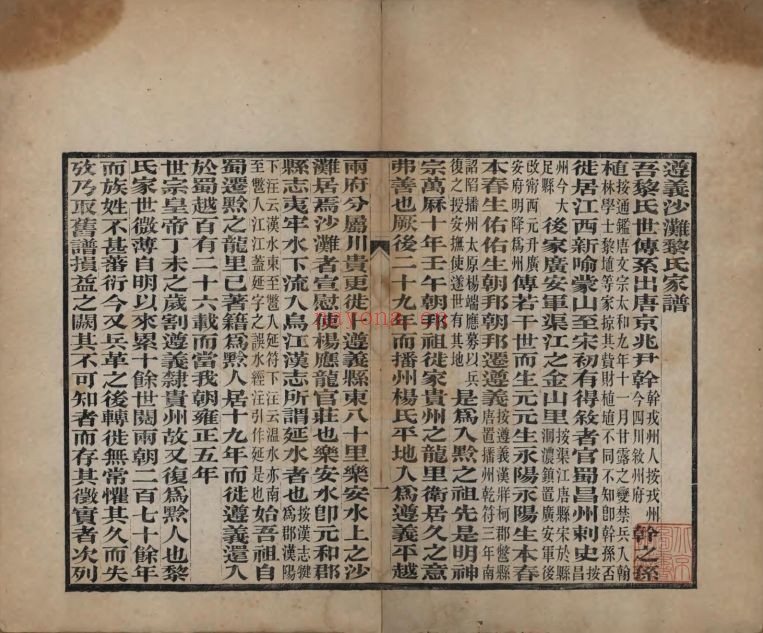 遵義沙灘黎氏家譜
吾黎氏世傳系出唐京兆尹幹幹戎州人按戎州今四川敘州府幹之孫
植按通鑑唐文宗太和九年十一月甘露之變禁兵入翰林學士黎埴等家掠其貲財植埴不同不知卽幹孫否
徙居江西新喻蒙山至宋初有得敘者官蜀昌州刺史按昌州今大足縣
後家廣安軍渠江之金山里按渠江唐縣宋於縣洄濃鎮置廣安軍後改甯西元升廣安府明降爲州傳若干世而生元元生永陽永陽生本春
本春生佑佑生朝邦朝邦遷遵義按遵義漢牂柯郡鄨縣唐置播州乾符三年南詔陷播州太原楊端應募以兵復之授安撫使遂世有其地是爲入黔之祖先是明神
宗萬厤十年壬午朝邦祖徙家貴州之龍里衛居久之意
弗善也厥後二十九年而播州楊氏平地入爲遵義平越
兩府分屬川貴更徙卜遵義縣東八十里樂安水上之沙
灘居焉沙灘者宣慰使楊應龍官莊也樂安水卽元和郡
縣志夷牢水下流入烏江漢志所謂延水者也按漢志犍爲郡漢陽
下注云漢水東至鄨入延符下注云溫水亦南至鄨入江江蓋延字之誤水經注引作延是也始吾祖自
蜀遷黔之龍里已著籍爲黔人居十九年而徙遵義還入
於蜀越百有二十六載而當我朝雍正五年
世宗皇帝丁未之歲割遵義隸貴州故又復爲黔人也黎
氏家世微薄自明以來累十餘世閱兩朝二百七十餘年
而族姓不甚蕃衍今又兵革之後轉徙無常懼其久而失
攷乃取舊譜損益之闕其不可知者而存其徵實者次列
一
nayona.cn